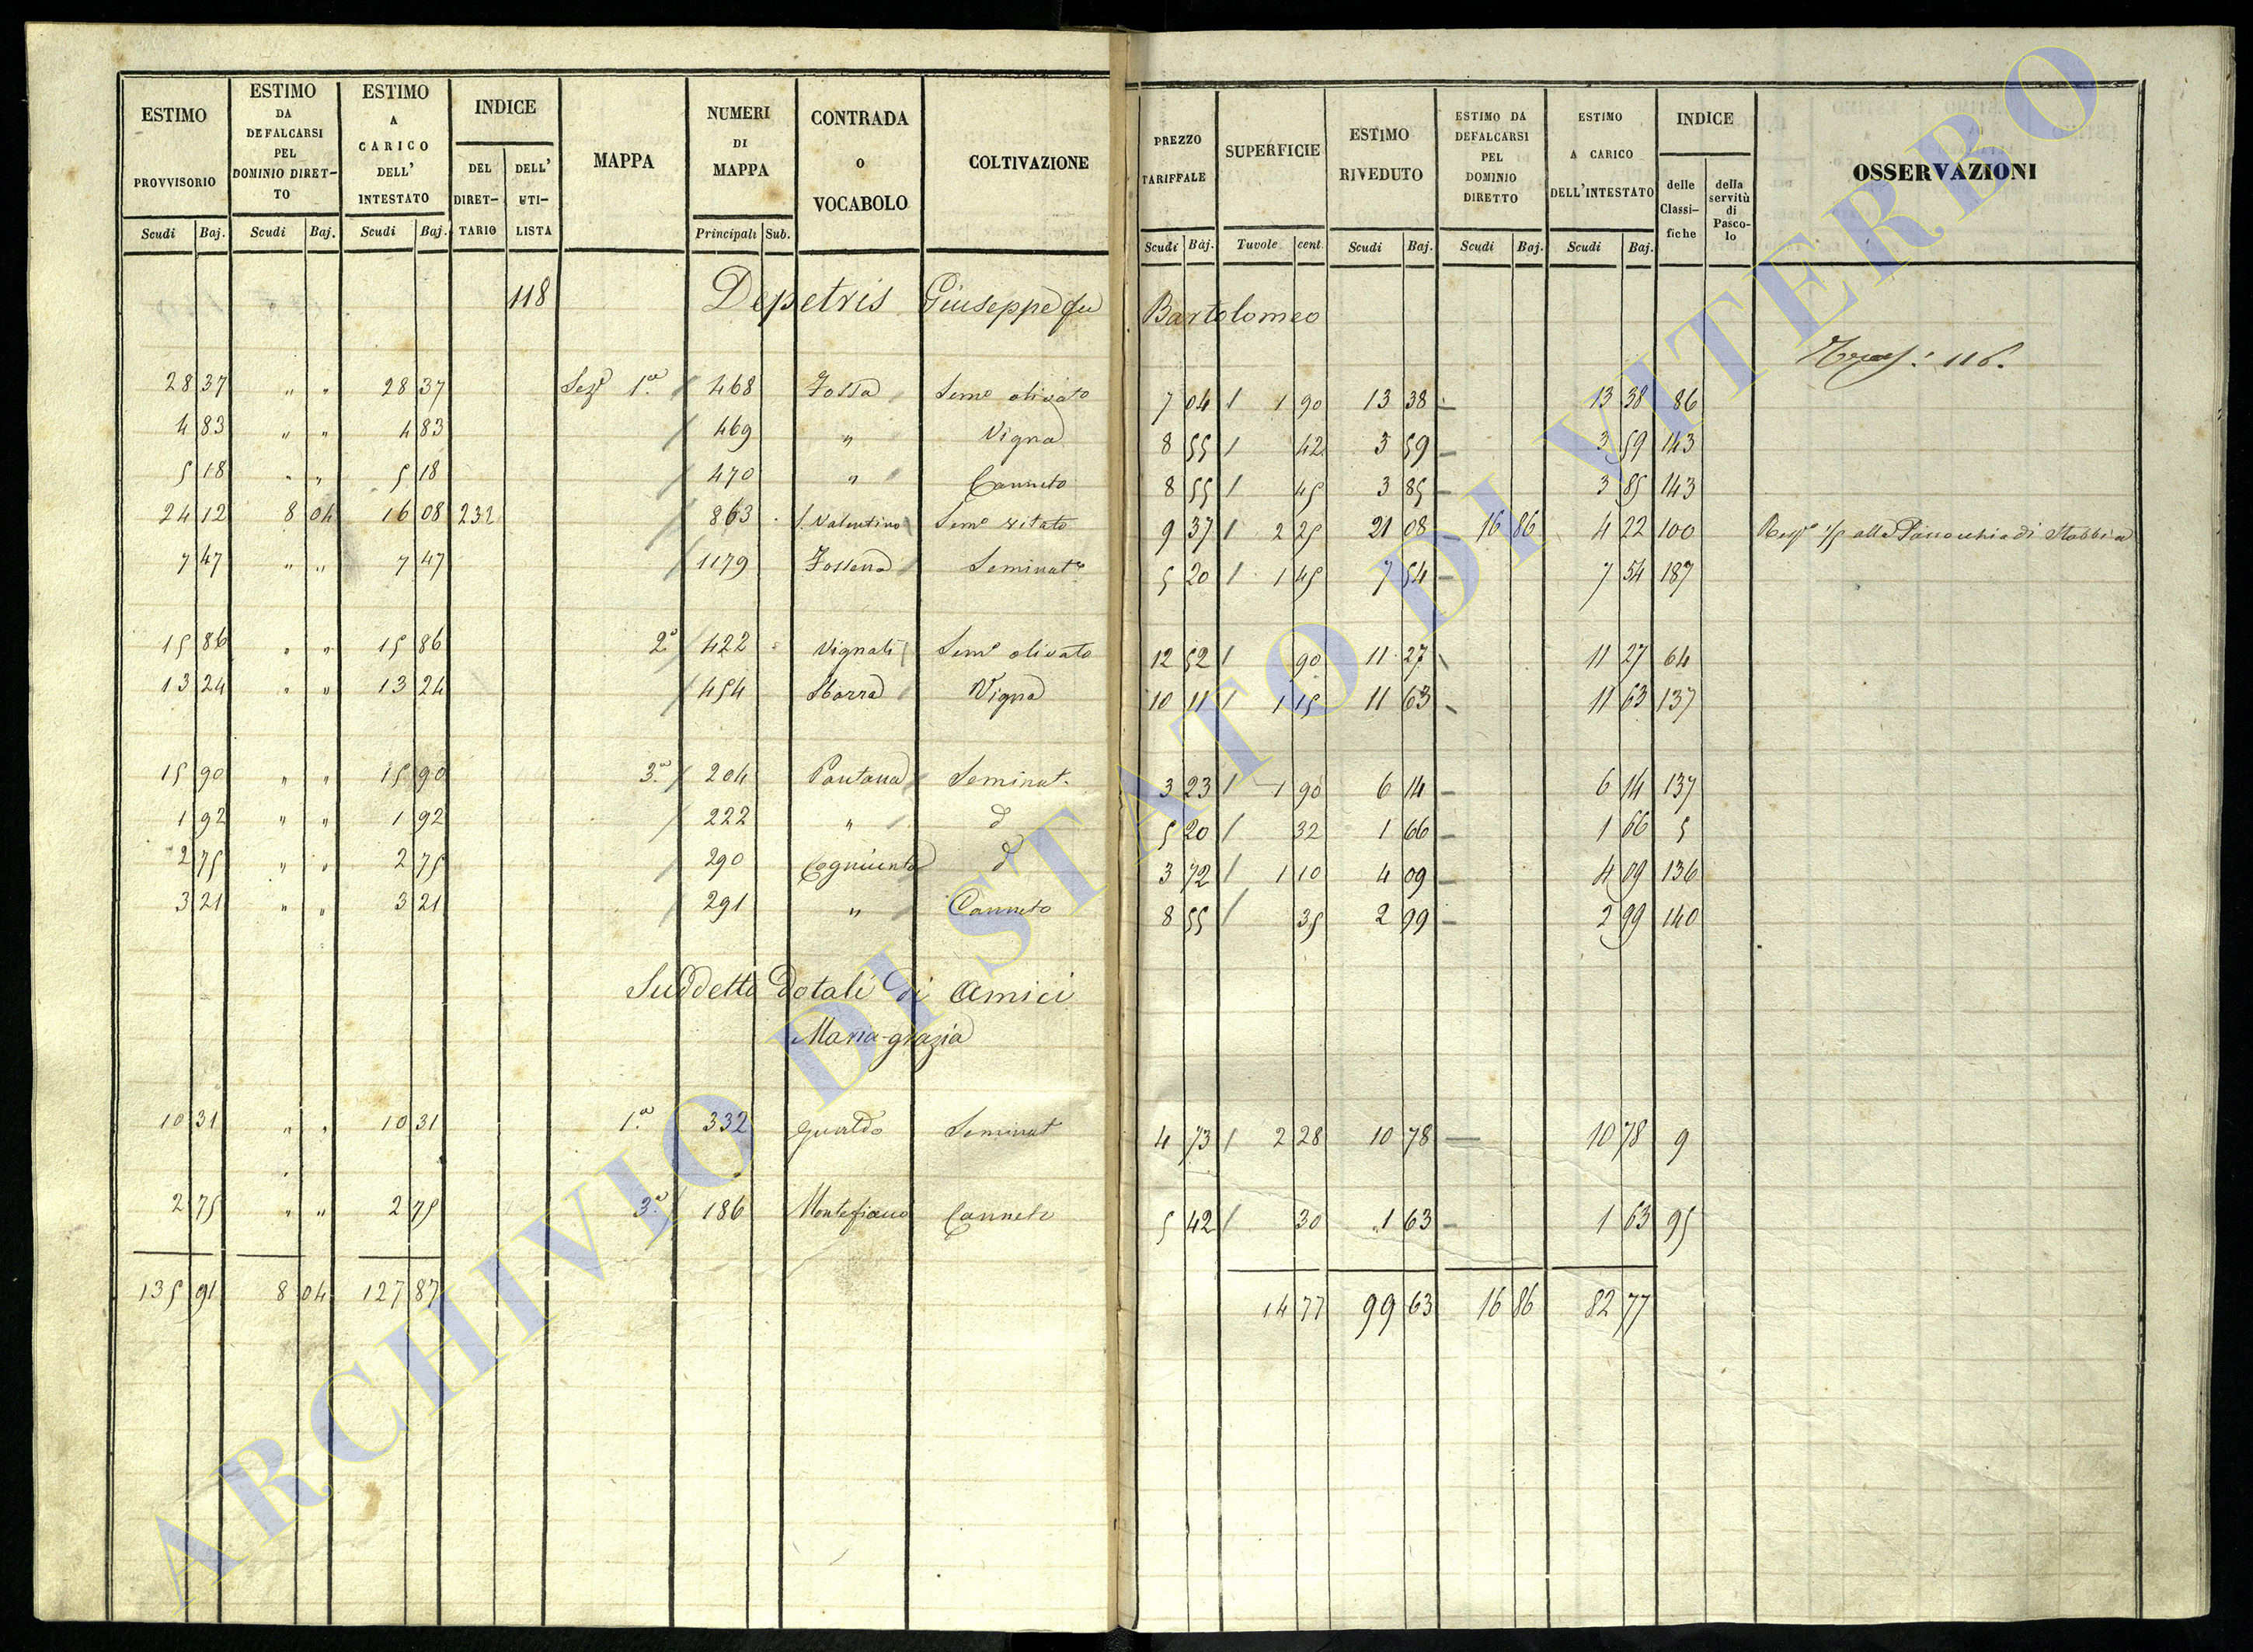 ESTIMO PROVVISORIO Scudi Baj.
ESTIMO DA DEFALCARSI PEL DOMINIO DIRET-TO Scudi Baj.
ESTIMO A CARICO DELL' INTESTATO Scudi Baj.
INDICE DEL DIRET-TARIO DELL' UTI-LISTA
MAPPA
NUMERI DI MAPPA Principali Sub.
CONTRADA o VOCABOLO
COLTIVAZIONE
PREZZO TARIFFALE Scudi Baj.
SUPERFICIE Tavole cent.
ESTIMO RIVEDUTO Scudi Baj.
ESTIMO DA DEFALCARSI PEL DOMINIO DIRETTO Scudi Baj.
ESTIMO A CARICO DELL'INTESTATO Scudi Baj.
INDICE delle Classi-fiche della servitù di Pasco-lo
OSSERVAZIONI
118 Depetris Giuseppe fu Bartolomeo
116.
28 37 " " 28 37 Seze 1.a 468 Fossa Semo olivato 7 04 1 90 13 38 13 38 86
4 83 " " 4 83 469 " Vigna 8 55 42 3 59 3 59 143
5 18 " " 5 18 470 " Canneto 8 55 45 3 85 3 85 143
24 12 8 04 16 08 232 863 S. Valentino Semo vitato 9 37 2 25 21 08 16 86 4 22 100 1/5 alla Parrocchia di Stabbia
7 47 " " 7 47 1179 Seminato 5 20 1 45 7 54 7 54 187
15 86 " " 15 86 2.a 422 Vignali Semo olivato 12 52 90 11 27 11 27 64
13 24 " " 13 24 454 Sbarra Vigna 10 11 1 15 11 63 11 63 137
15 90 " " 15 90 3.a 204 Pantana Seminat. 3 23 1 90 6 14 6 14 137
1 92 " " 1 92 222 " d 5 20 32 1 66 1 66 5
2 75 " " 2 75 290 d 3 72 1 10 4 09 4 09 136
3 21 " " 3 21 291 " Canneto 8 55 35 2 99 2 99 140
Suddetto Dotali di Amici
Maria-grazia
10 31 " " 10 31 1.a 332 Gualdo Seminat 4 73 2 28 10 78 10 78 9
2 75 " " 2 75 3.a 186 Montefiano Canneto 5 42 30 1 63 1 63 95
135 91 8 04 127 87 14 77 99 63 16 86 82 77
ARCHIVIO DI STATO DI VITERBO